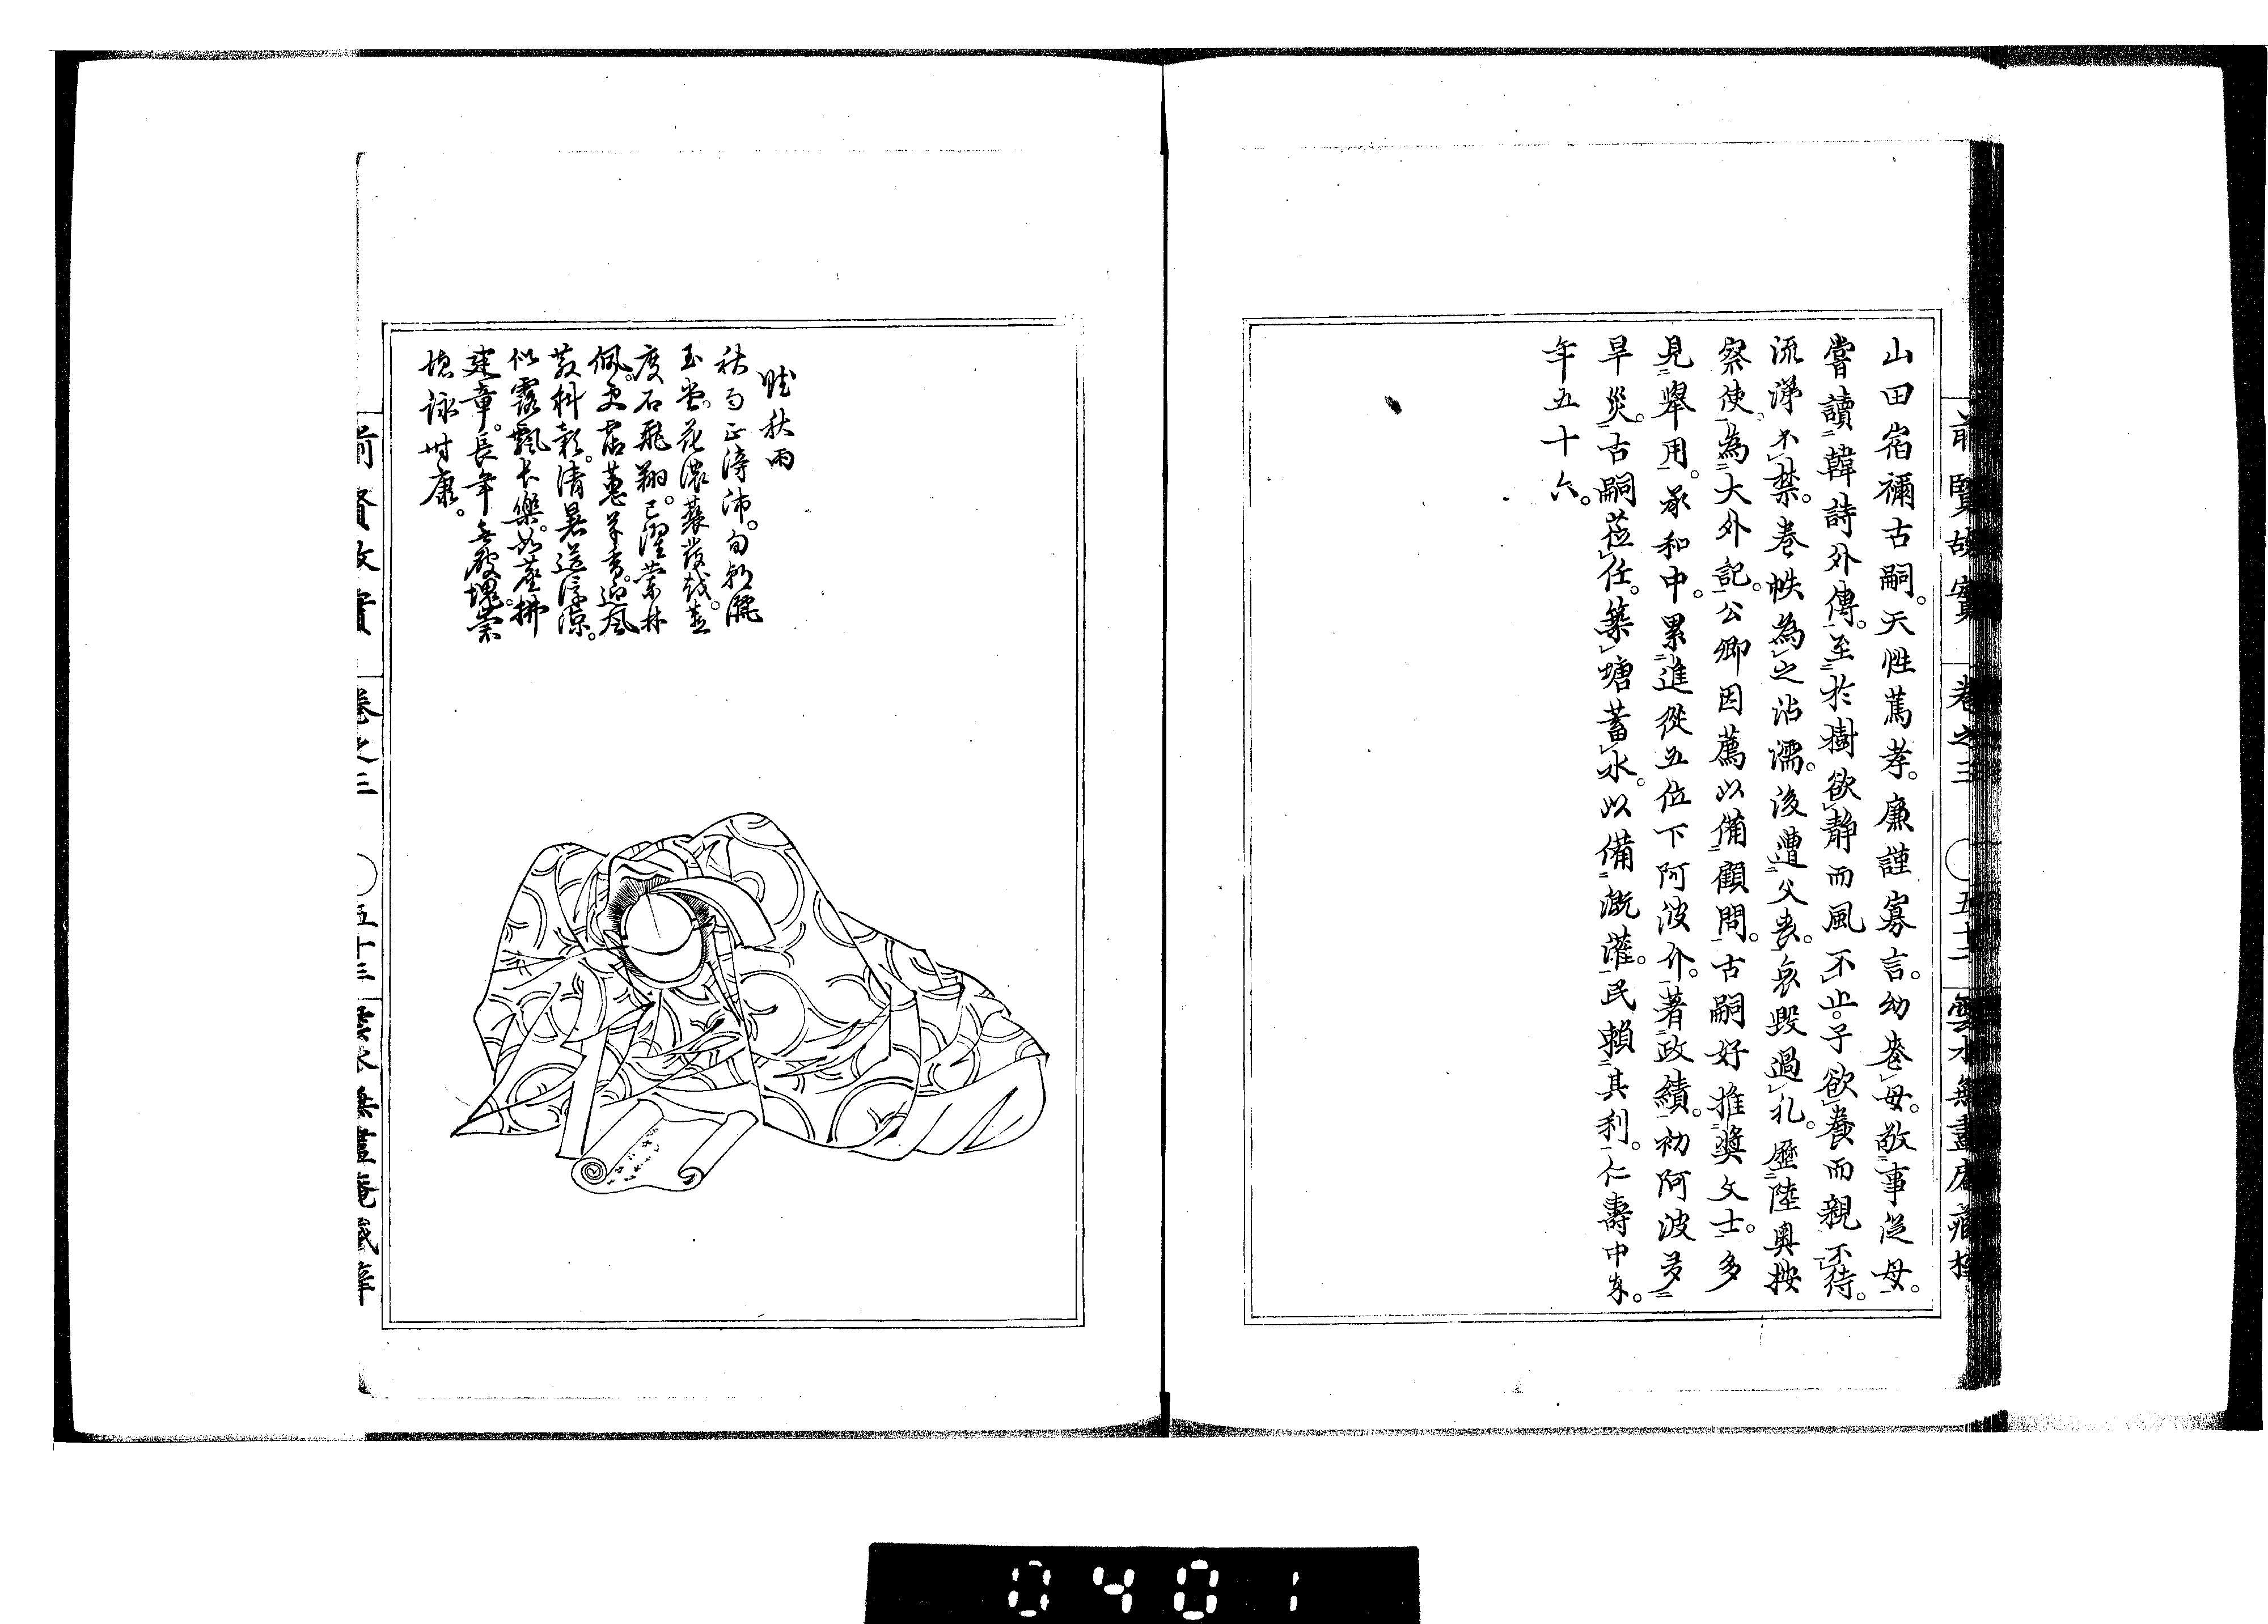 前賢故實 卷之三 〇五十二 雲水無盡庵藏梓
山田宿禰古嗣。天性篤孝。廉謹寡言。幼喪母。敬事從母。
嘗讀韓詩外傳。至於樹欲靜而風不止。子欲養而親不待。
流涕不禁。卷帙為之沾濡。後遭父喪。哀毀過礼。歷陸奧按
察使。為大外記。公卿因薦以備顧問。古嗣好推奬文士。多
見舉用。承和中。累進從五位下阿波介。著政績。初阿波多
旱災。古嗣莅任。築塘蓄水。以備漑灌。民賴其利。仁壽中卒。
年五十六。
賦秋雨
秋雨正滂沛。旬朝灑
玉堂。花濃蘂
度石飛翔。已濯叢林
佩。更霑蕙草香。迎風
散斜影。清暑送浮涼。
似露飄長樂。如塵拂
建章。長年無破塊。崇
德詠時康。
前賢故實 卷之三 〇五十三 雲水無盡庵藏梓
0401